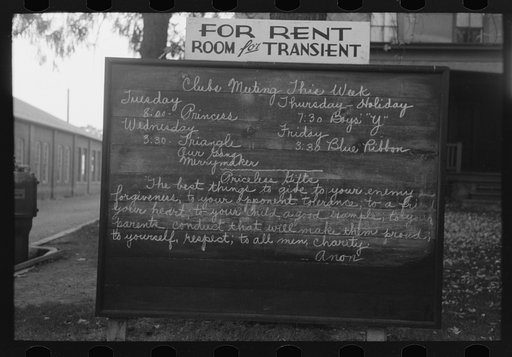 FOR RENT
ROOM for TRANSIENT
Clubs Meeting This Week
Tuesday
8:00 - Princess
Wednesday
3:30 - Triangle
Our Gang
Merrymaker
Thursday - Holiday
7:30 Boys' "Y"
Friday
3:30 Blue Ribbon
Priceless Gifts
"The best things to give to your enemy
forgiveness; to your opponent tolerance; to a
your heart; to your child a good example; to
parents conduct that will make them proud;
to yourself, respect; to all men, charity.
Anon